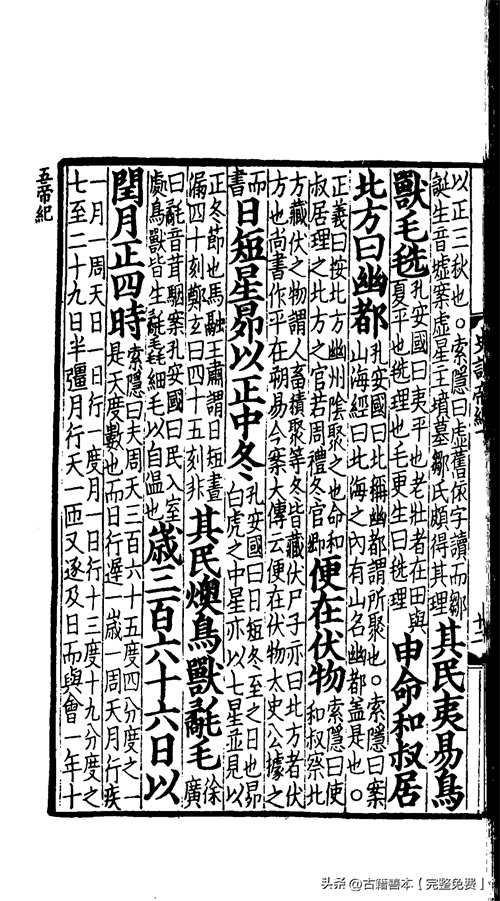 以正三秋也。索隱曰虛舊依字讀而鄒
誕生音墟案虛星主墳墓鄒氏頗得其理
其民夷易鳥
獸毛毨
孔安國曰夷平也老壯者在田與
夏平也毨理也毛更生曰毨理
申命和叔居
北方曰幽都
孔安國曰北稱幽都謂所聚也。索隱曰案
山海經曰北海之內有山名幽都蓋是也。
正義曰按北方幽州陰聚之也命和
叔居理之北方之官若周禮冬官卿
便在伏物
索隱曰使
和叔察北
方藏伏之物謂人畜積聚等冬皆藏伏尸子亦曰北方者伏
方也尚書作平在朔易今案大傳云便在伏物太史公據之
而
書
日短星昴以正中冬
孔安國曰日短冬至之日也昴
白虎之中星亦以七星並見以
正冬節也馬融王肅謂日短晝
漏四十刻鄭玄曰四十五刻非
其民燠鳥獸氄毛
徐
廣
曰氄音茸駰案孔安國曰民入室
處鳥獸皆生氄毳細毛以自溫也
歲三百六十六日以
閏月正四時
索隱曰夫周天三百六十五度四分度之一
是天度數也而日行遲一歲一周天月行疾
一月一周天日一日行一度月一日行十三度十九分度之
七至二十九日半彊月行天一匝又逐及日而與會一年十
五帝紀
头条 @古籍善本【完整免费】